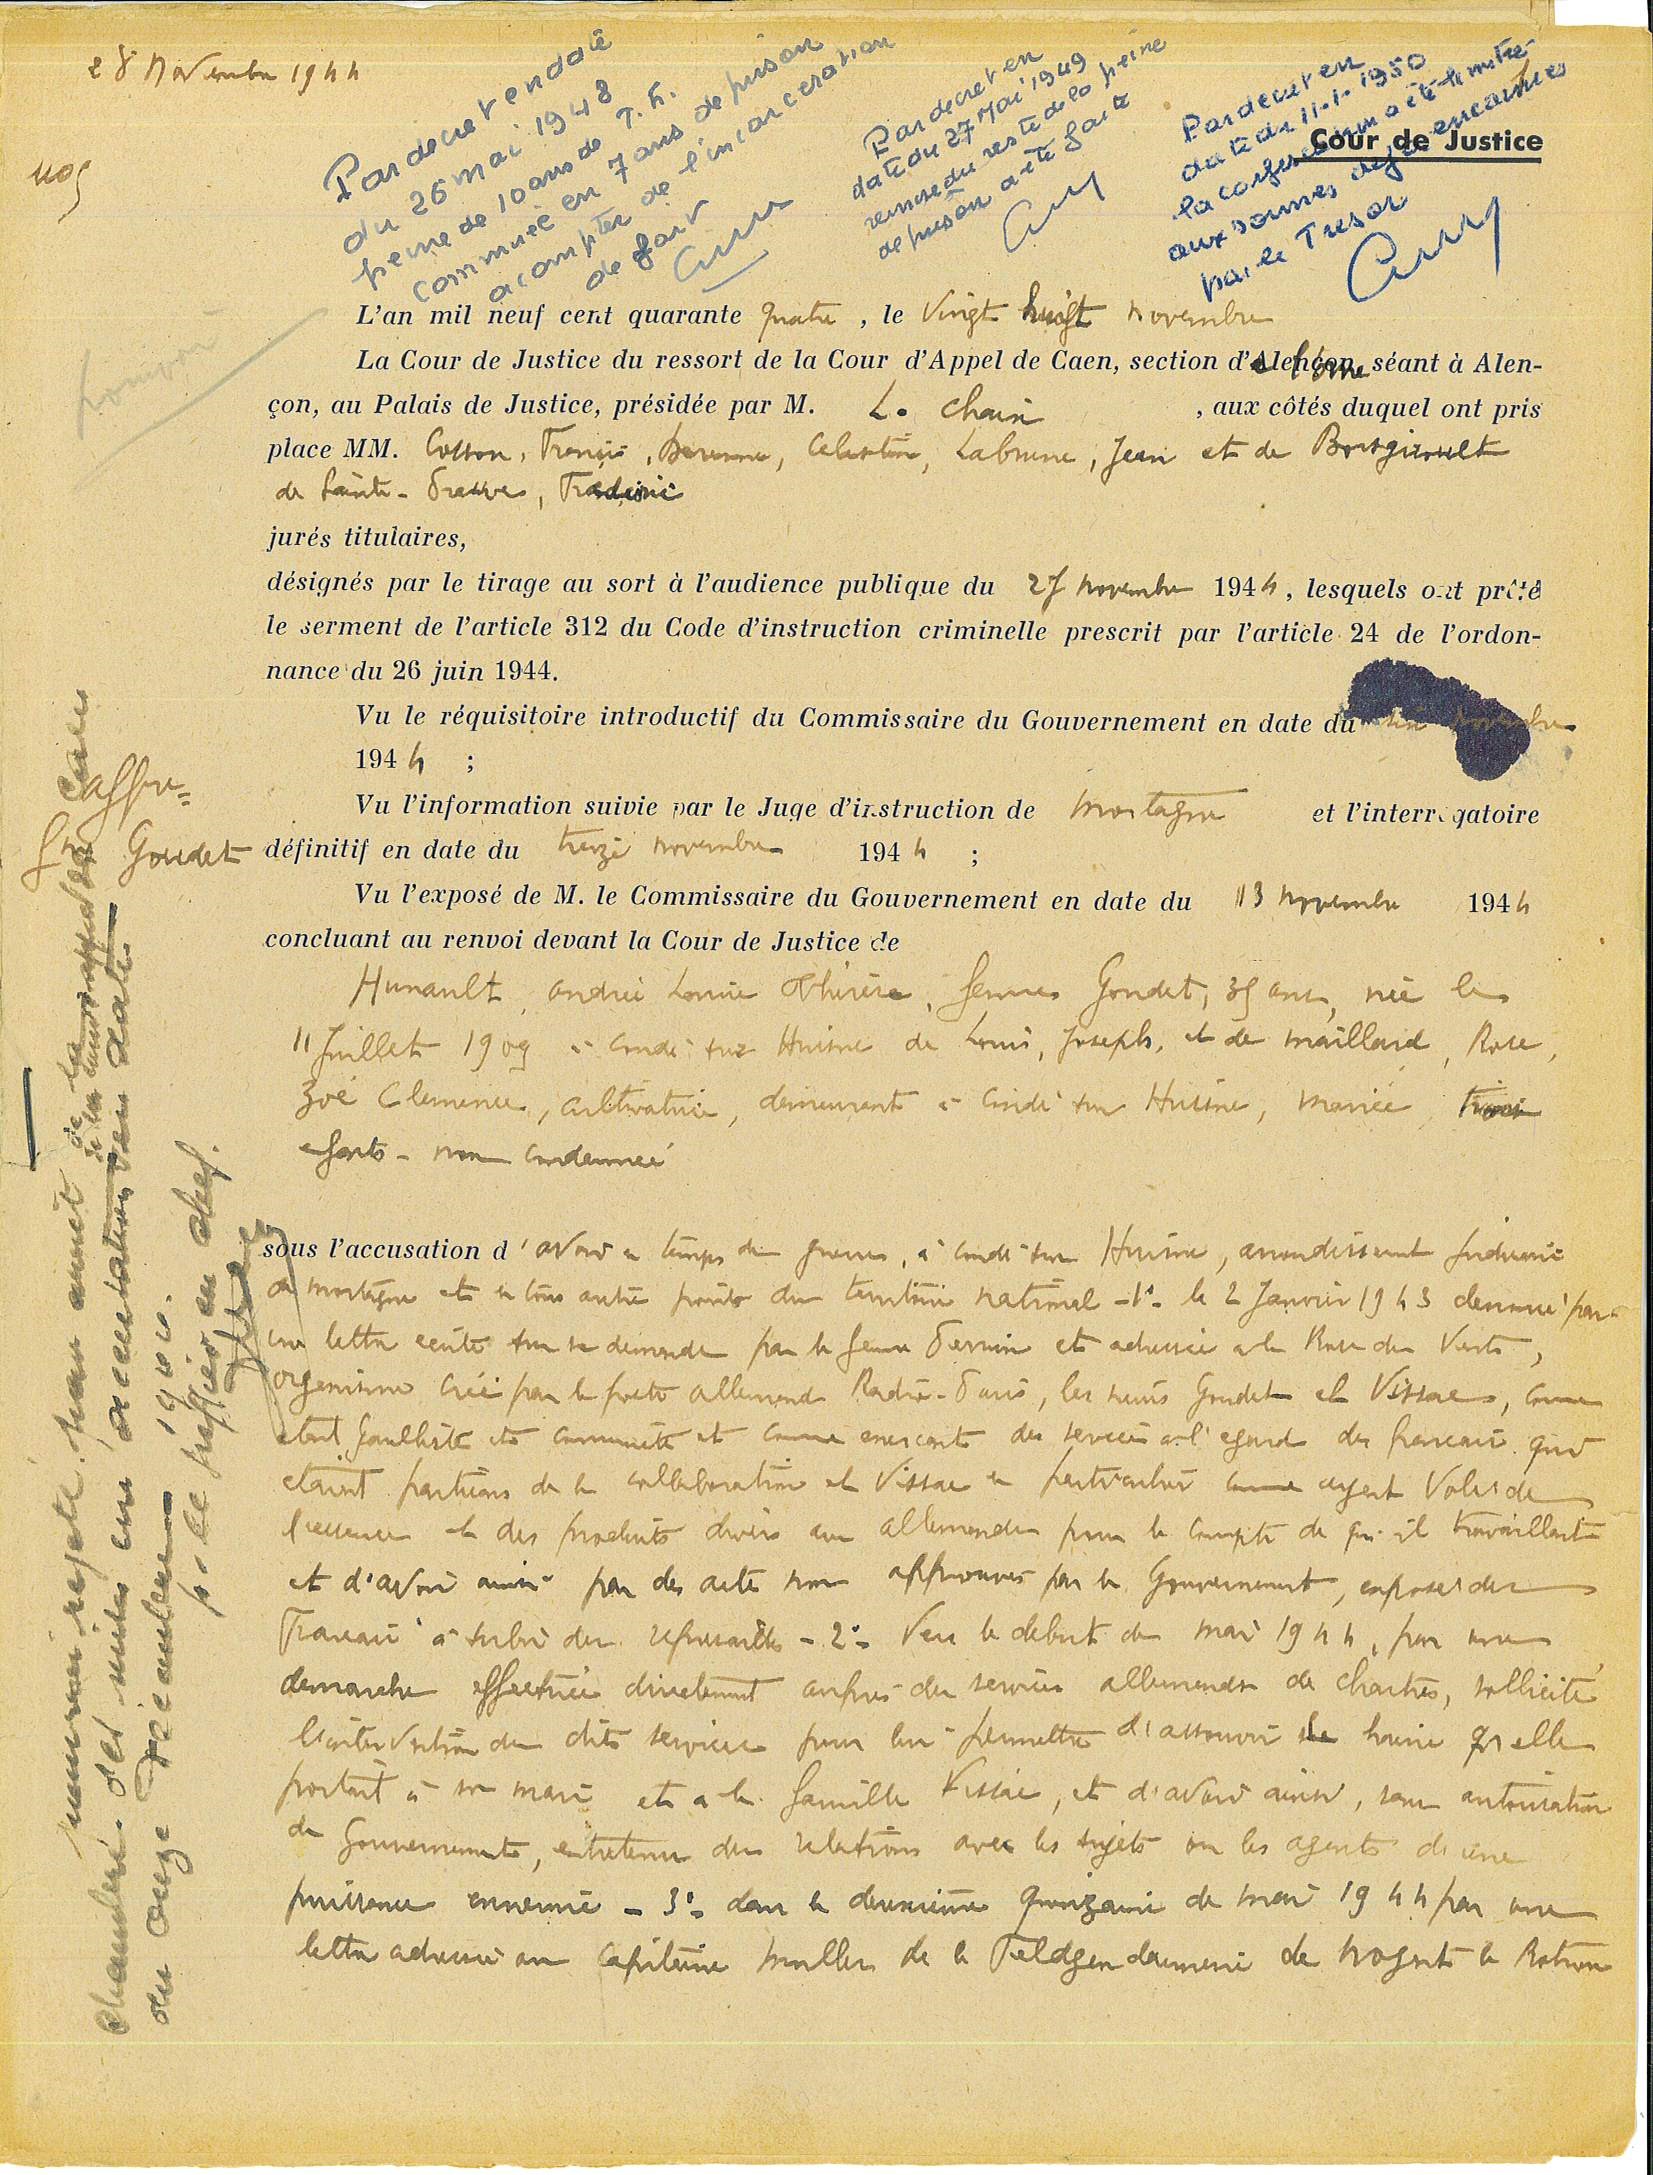 28 Novembre 1944
Par decret en date
du 26 mai 1948
peine de 10 ans de T. F.
commuée en 7 ans de prison
à compter de l'incarceration
de fait
Par decret en
date du 27 Mai 1949
remise du reste de la peine
de prison a été faite
Par decret en
date du 11-1-1950
la confiscation a été limitée
aux sommes deja encaissées
par le Tresor
Cour de Justice
L'an mil neuf cent quarante quatre, le Vingt huit novembre
La Cour de Justice du ressort de la Cour d'Appel de Caen, section d'Alençon, séant à Alen-
çon, au Palais de Justice, présidée par M. L. Chain, aux côtés duquel ont pris
place MM. Cotton, Francis, Celestin, Labrune, Jean et de
de Sainte-
jurés titulaires,
désignés par le tirage au sort à l'audience publique du 27 novembre 1944, lesquels ont prêté
le serment de l'article 312 du Code d'instruction criminelle prescrit par l'article 24 de l'ordon-
nance du 26 juin 1944.
Vu le réquisitoire introductif du Commissaire du Gouvernement en date du novembre
1944 ;
Vu l'information suivie par le Juge d'instruction de Mortagne et l'interrogatoire
définitif en date du treize novembre 1944 ;
Vu l'exposé de M. le Commissaire du Gouvernement en date du 13 novembre 1944
concluant au renvoi devant la Cour de Justice de
Hunault, andrée Louise Thérèse, femme Goudet, 35 ans, née le
11 Juillet 1909 à Condé sur Huisne de Louis, Joseph, et de Maillard, Rose,
Zoé Clemence, cultivatrice, demeurant à Condé sur Huisne, mariée, trois
enfants - non condamnée
sous l'accusation d'avoir en temps de guerre, à Condé sur Huisne, arrondissement judiciaire
de Mortagne et en tous autres points du territoire national - 1° - le 2 Janvier 1943 dénoncé par
une lettre écrite sur sa demande par la femme et adressée à la Rose des Vents,
organisme créé par le poste allemand Radio-Paris, les sieurs Goudet et Vissac, comme
étant gaullistes et communistes et comme exerçant des services à l'egard des français qui
étaient partisans de la collaboration et Vissac en particulier comme ayant Volé de
l'essence et des produits divers aux allemands pour le compte de qui il travaillait
et d'avoir ainsi par des actes non approuvés par le Gouvernement, exposé des
Français à subir des represailles - 2° - Vers le debut de mai 1944, par une
demarche effectuée directement auprès des services allemands de Chartres, sollicité
l'intervention des dits services pour lui permettre d'assouvir la haine qu'elle
portait à son mari et à la famille Vissac, et d'avoir ainsi, sans autorisation
du Gouvernement, entretenu des relations avec les sujets ou les agents d'une
puissance ennemie - 3° - dans la deuxième quinzaine de mai 1944 par une
lettre adressée au Capitaine Muller de la Feldgendarmerie de Nogent le Rotrou
affre =
fme Goudet
pourvoi
pourvoi rejeté par arrêt de la
chambre des mises en accusation
du onze Décembre 1944.
p. le greffier en chef.